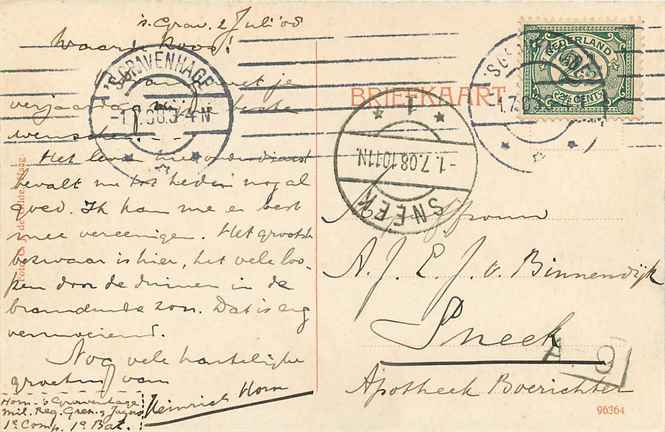 's Grav. 1 Juli '08
Waarde Roos!
met je
verjaardag mijn beste
wenschen.
Het leven hier onder dienst
bevalt me tot heden nog al
goed. Ik kan me er best
mee vereenigen. Het grootste
bezwaar is hier, het vele loo-
pen door de duinen in de
brandende zon. Dat is erg
vermoeiend.
Nog vele hartelijke
groeten van
Heinrich Horn
Horn 's Gravenhage
Mil. Reg. Gren. & Jagers
1e Comp. 1e Bat.
'S GRAVENHAGE
-1.7.08.3-4N
BRIEFKAART
NEDERLAND
2½ CENT
SNEEK
1
-1.7.08.10-11N
Mejuffrouw
A. J. E. J. v. Binnendijk
Sneek
Apotheek Boerichter
96364